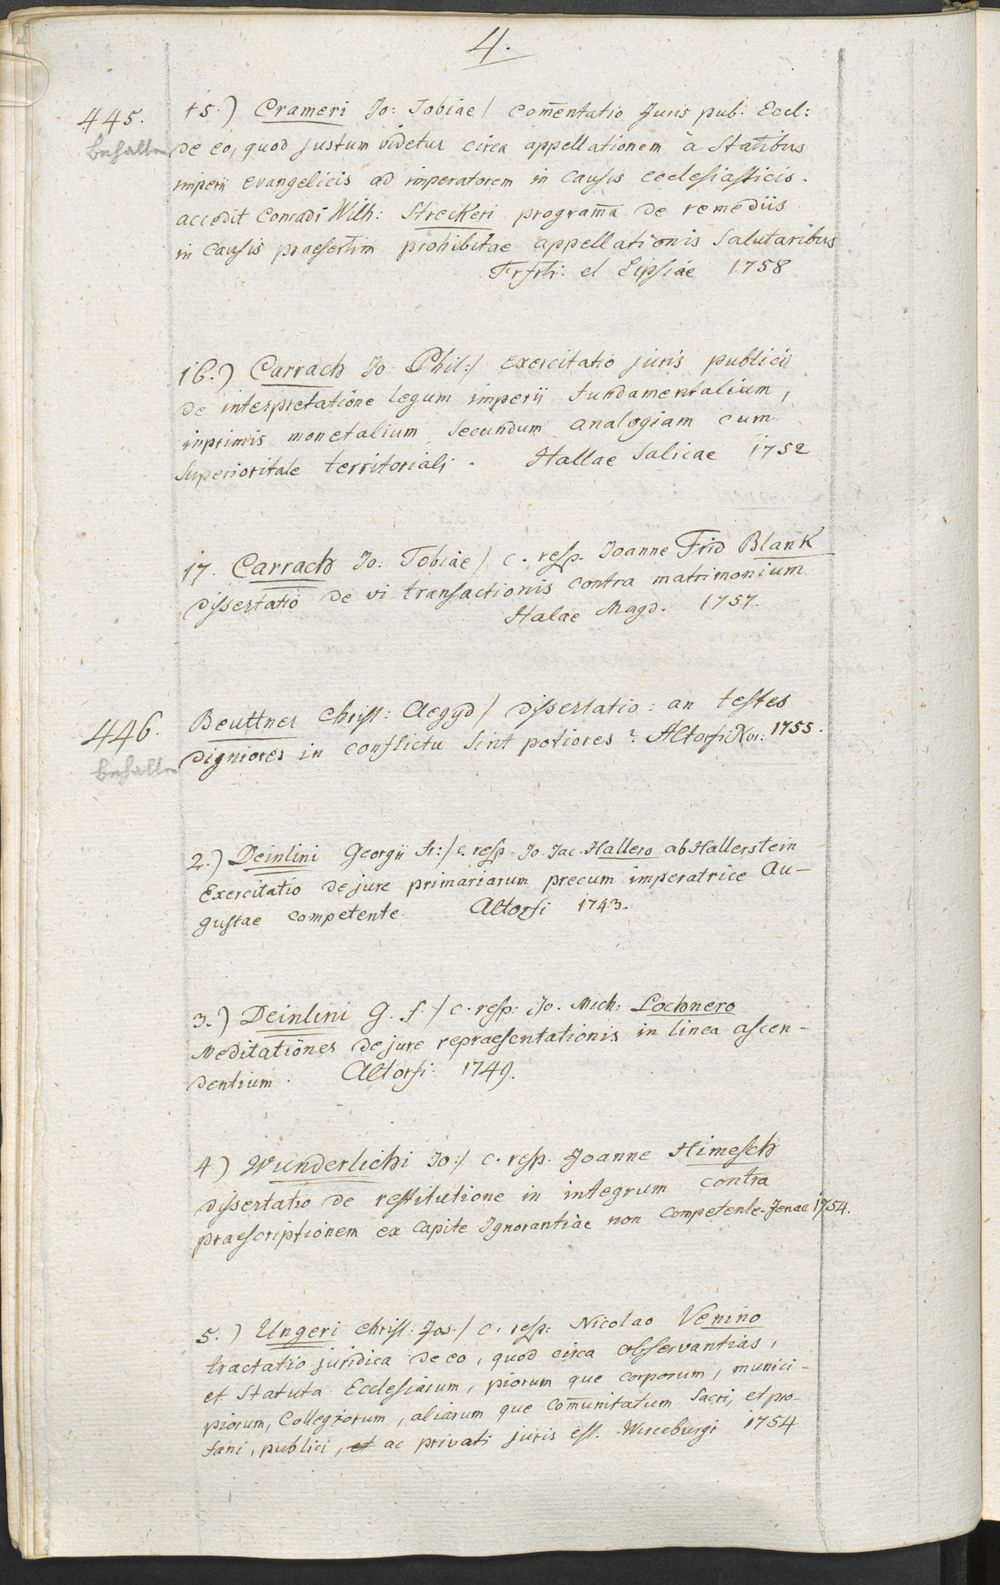 4.
445. 15.) Crameri Jo: Tobiae / Com̄entatio Juris pub: Eccl:
behalten de eo, quod justum videtur circa appellationem à Statibus
imperii evangelicis ad imperatorem in causis ecclesiasticis.
accedit Conradi Wilh: Streckeri program̄a de remediis
in causis praesertim prohibitae appellationis Salutaribus
Frfrti: et Lipsiae 1758
16.) Carrach Jo Phil:/ exercitatio juris publici
de interpretatione legum imperii fundamentalium,
inprimis monetalium secundum analogiam cum
Superioritate territoriali. Hallae Salicae 1752
17. Carrach Jo: Tobiae / c. resp. Joanne Frid Blank
dissertatio de vi transactionis contra matrimonium
Halae Magd. 1757.
446. Beuttner Christ: Aegyd / dissertatio: an testes
behalten digniores in conflictu Sint potiores? Altorfi Nor: 1755.
2.) Deinlini Georgii Fr:/ c. resp. Jo. Jac. Hallero ab Hallerstein
Exercitatio de jure primariarum precum imperatrice Au-
gustae competente Altorfi 1743.
3.) Deinlini G. f. / c. resp: Jo. Mich: Lochnero
Meditationes de jure repraesentationis in linea ascen-
dentium. Altorfi 1749.
4) Wunderlichi Jo:/ c. resp. Joanne Himesch
dissertatio de restitutione in integrum contra
praescriptionem ex Capite Ignorantiae non Competente. Jenae 1754.
5.) Ungeri Christ. Jos./ c. resp: Nicolao Venino
tractatio juridica de eo, quod circa observantias,
et Statuta Ecclesiarum, piorum que corporum, munici-
piorum, Collegiorum, aliarum que Com̄unitatum Sacri, et pro-
fani, publici, et ac privati juris est. Wirceburgi 1754